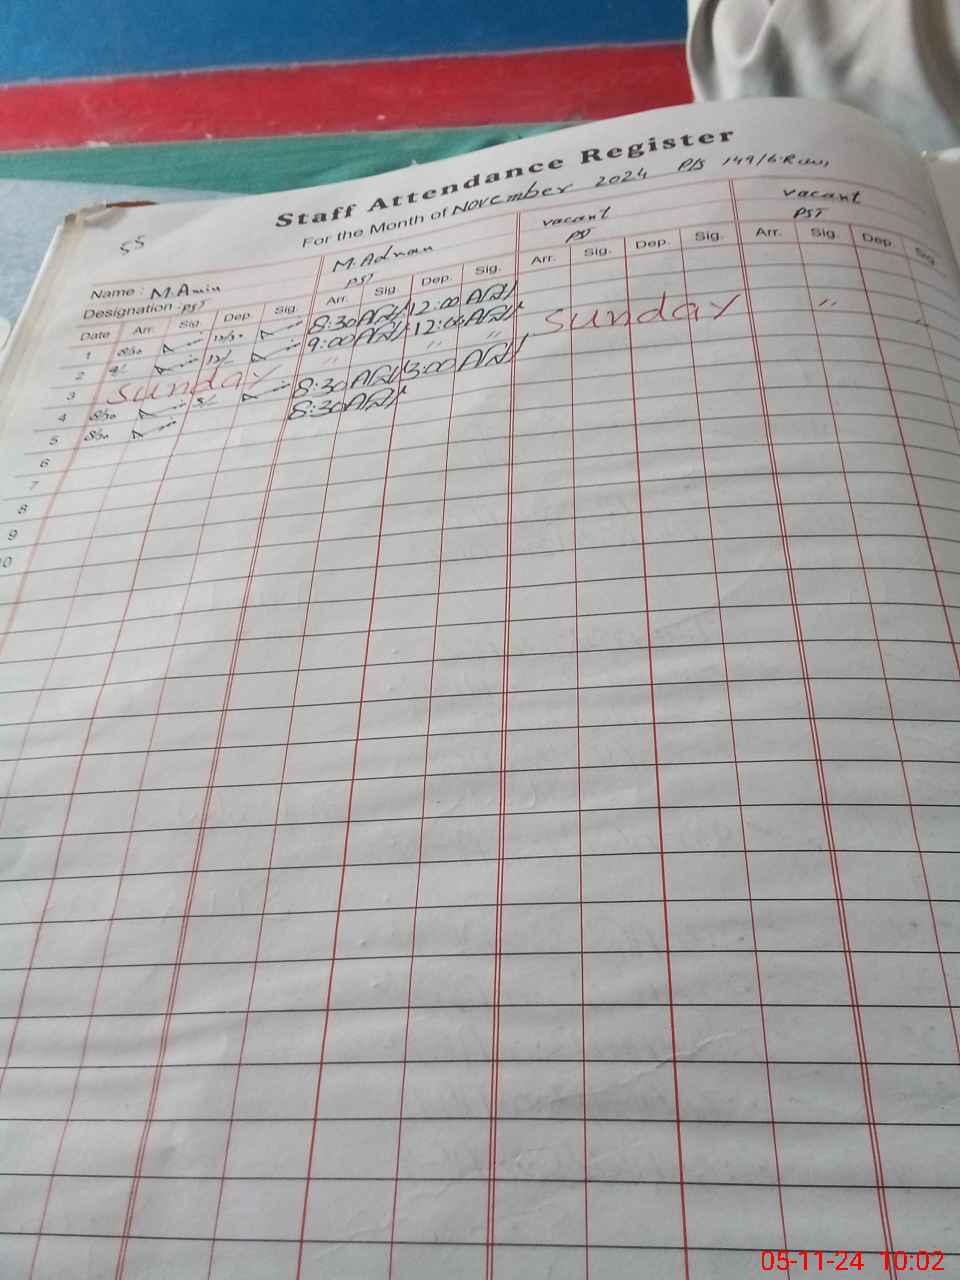 Staff Attendance Register
For the Month of November 2024
55
Name : M.Amin M.Adnan vacant vacant
Designation : PST PST PST PST
Date Arr. Sig. Dep. Sig. Arr. Sig. Dep. Sig. Arr. Sig. Dep. Sig. Arr. Sig. Dep. Sig.
1 8/30 12/30 8:30 12:00
2 9/ 12/ 9:00 12:00
3 Sunday " " " Sunday "
4 8/30 8:30
5 8/30 8:30
6
7
8
9
10
05-11-24 10:02